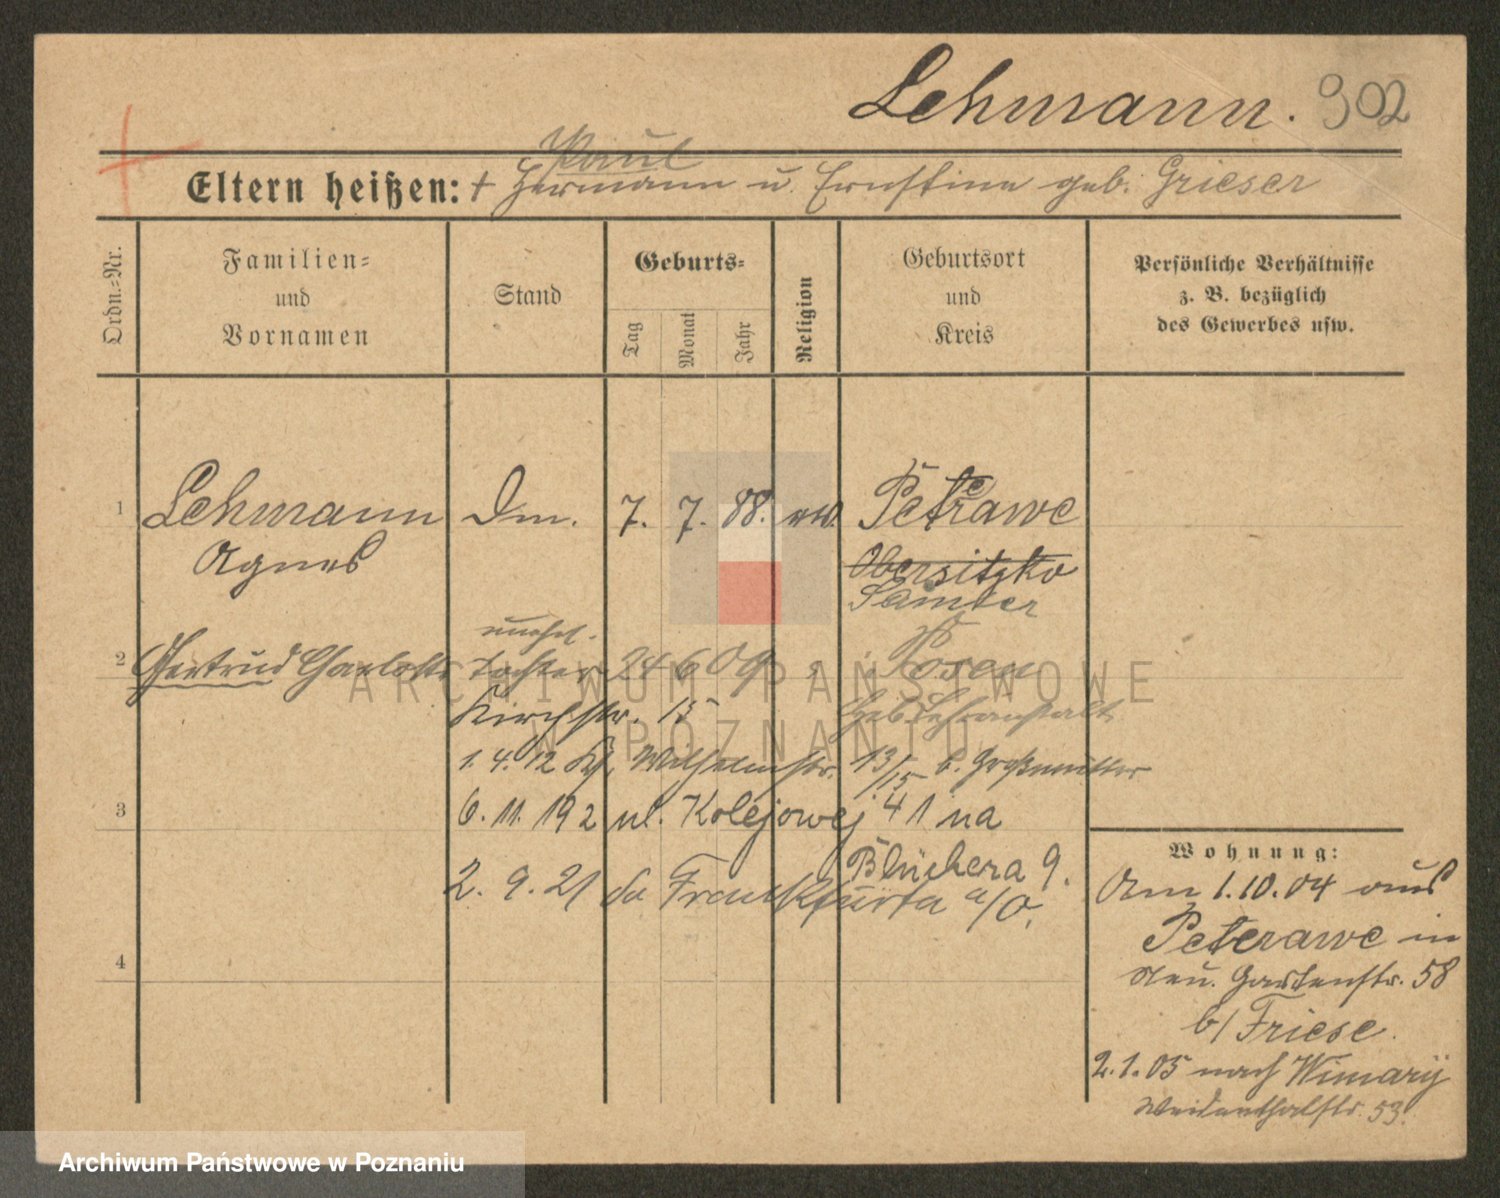 Lehmann. 302
Paul
Eltern heißen: + Hermann u. Ernstine geb. Grieser
Ordn.-Nr.
Familien-
und
Vornamen
Stand
Geburts-
Tag
Monat
Jahr
Religion
Geburtsort
und
Kreis
Persönliche Verhältnisse
z. B. bezüglich
des Gewerbes usw.
1 Lehmann Dm. 7. 7. 88. ew. Petrawe
Agnes
Obersitzko
Samter
unehel.
2 Gertrud Charlotte Tochter 24 6 09 Posen
Kirchstr. 15
Heb. Lehranstalt
1. 4. 12 Wilhelmstr. 13/15 b. Großmutter
3
6. 11. 192 ul. Kolejowej 41 na
Blüchera 9.
2. 9. 21 do Frankfurta a/O.
4
Wohnung:
Am 1.10.04 aus
Peterawe in
neu. Gartenstr. 58
b/ Friese.
2.1.05 nach Winiary
53.
ARCHIWUM PAŃSTWOWE
W POZNANIU
Archiwum Państwowe w Poznaniu